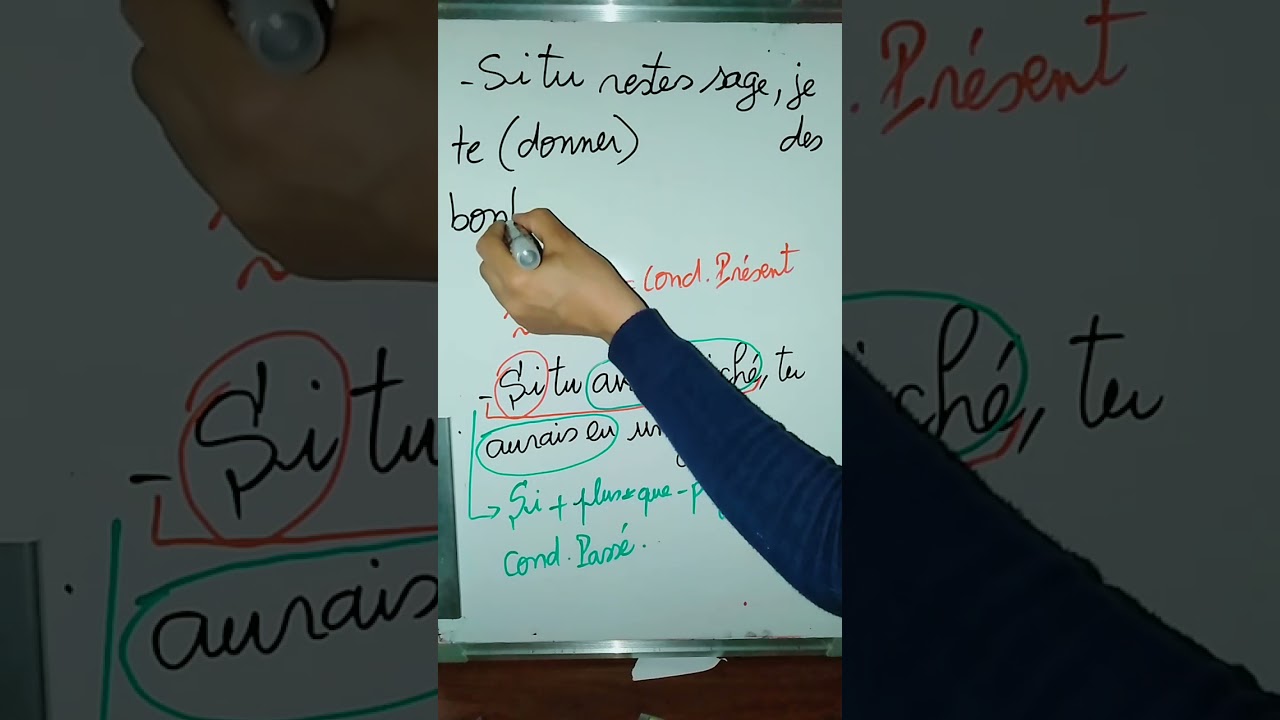 - Si tu restes sage, je
te (donner) des
bon
= Cond. Présent
- Si tu ché, tu
aurais eu un
→ Si + plus-que-p
Cond. Passé.